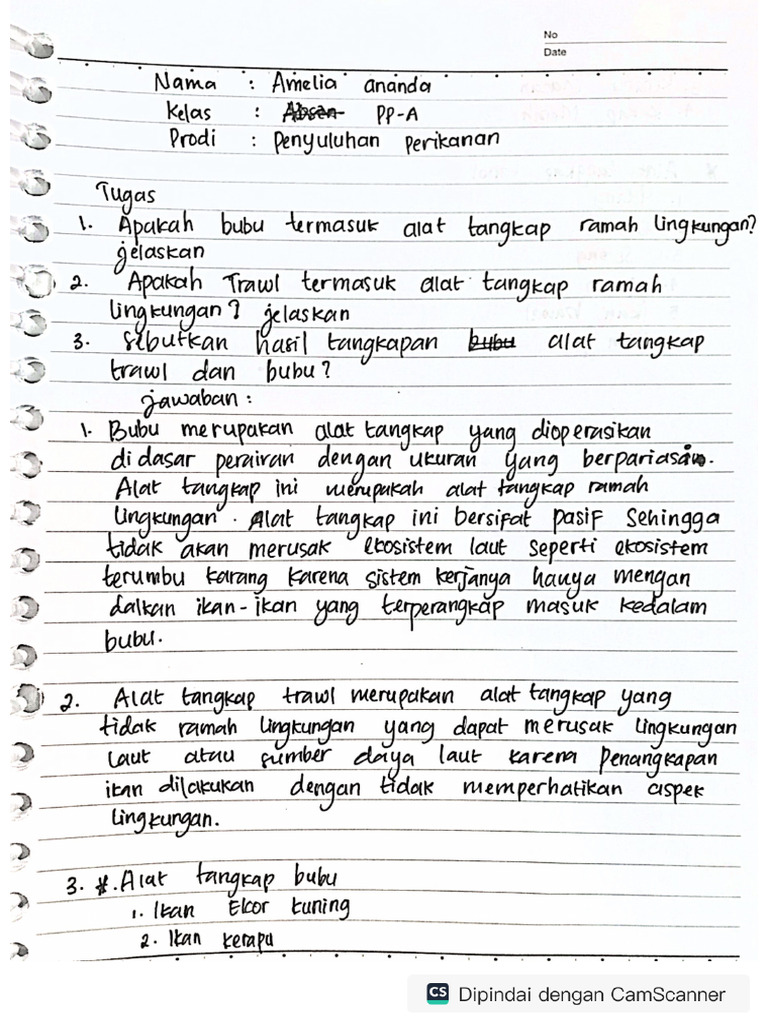 No
Date
Nama : Amelia ananda
Kelas : Absen PP-A
Prodi : Penyuluhan perikanan
Tugas
1. Apakah bubu termasuk alat tangkap ramah lingkungan?
jelaskan
2. Apakah Trawl termasuk alat tangkap ramah
lingkungan? jelaskan
3. sebutkan hasil tangkapan bubu alat tangkap
trawl dan bubu?
jawaban :
1. Bubu merupakan alat tangkap yang dioperasikan
di dasar perairan dengan ukuran yang berpariasain.
Alat tangkap ini merupakah alat tangkap ramah
lingkungan. Alat tangkap ini bersifat pasif sehingga
tidak akan merusak ekosistem laut seperti ekosistem
terumbu karang karena sistem kerjanya hanya mengan
dalkan ikan-ikan yang terperangkap masuk kedalam
bubu.
2. Alat tangkap trawl merupakan alat tangkap yang
tidak ramah lingkungan yang dapat merusak lingkungan
laut atau sumber daya laut karena penangkapan
ikan dilakukan dengan tidak memperhatikan aspek
lingkungan.
3. *. Alat tangkap bubu
1. Ikan Ekor kuning
2. Ikan kerapu
CS Dipindai dengan CamScanner